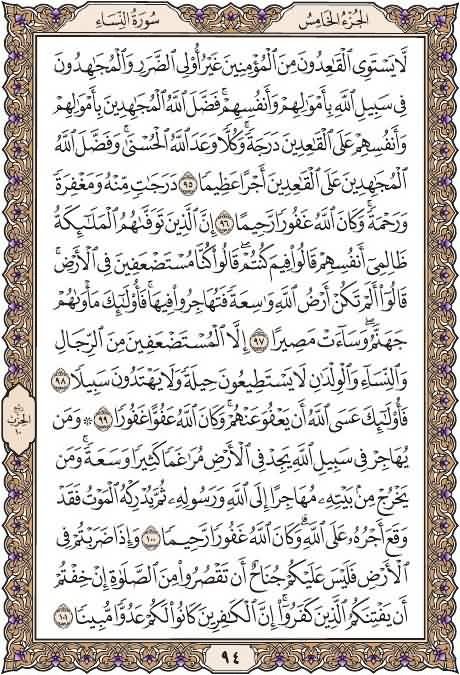 الجُزءُ الخَامِسُ
سُورَةُ النِّسَاءِ
لَّا يَسْتَوِي الْقَاعِدُونَ مِنَ الْمُؤْمِنِينَ غَيْرُ أُولِي الضَّرَرِ وَالْمُجَاهِدُونَ
فِي سَبِيلِ اللَّهِ بِأَمْوَالِهِمْ وَأَنفُسِهِمْ ۚ فَضَّلَ اللَّهُ الْمُجَاهِدِينَ بِأَمْوَالِهِمْ
وَأَنفُسِهِمْ عَلَى الْقَاعِدِينَ دَرَجَةً ۚ وَكُلًّا وَعَدَ اللَّهُ الْحُسْنَىٰ ۚ وَفَضَّلَ اللَّهُ
الْمُجَاهِدِينَ عَلَى الْقَاعِدِينَ أَجْرًا عَظِيمًا ٩٥ دَرَجَاتٍ مِّنْهُ وَمَغْفِرَةً
وَرَحْمَةً ۚ وَكَانَ اللَّهُ غَفُورًا رَّحِيمًا ٩٦ إِنَّ الَّذِينَ تَوَفَّاهُمُ الْمَلَائِكَةُ
ظَالِمِي أَنفُسِهِمْ قَالُوا فِيمَ كُنتُمْ ۖ قَالُوا كُنَّا مُسْتَضْعَفِينَ فِي الْأَرْضِ ۚ
قَالُوا أَلَمْ تَكُنْ أَرْضُ اللَّهِ وَاسِعَةً فَتُهَاجِرُوا فِيهَا ۚ فَأُولَٰئِكَ مَأْوَاهُمْ
جَهَنَّمُ ۖ وَسَاءَتْ مَصِيرًا ٩٧ إِلَّا الْمُسْتَضْعَفِينَ مِنَ الرِّجَالِ
وَالنِّسَاءِ وَالْوِلْدَانِ لَا يَسْتَطِيعُونَ حِيلَةً وَلَا يَهْتَدُونَ سَبِيلًا ٩٨
فَأُولَٰئِكَ عَسَى اللَّهُ أَن يَعْفُوَ عَنْهُمْ ۚ وَكَانَ اللَّهُ عَفُوًّا غَفُورًا ٩٩ ۞ وَمَن
يُهَاجِرْ فِي سَبِيلِ اللَّهِ يَجِدْ فِي الْأَرْضِ مُرَاغَمًا كَثِيرًا وَسَعَةً ۚ وَمَن
يَخْرُجْ مِن بَيْتِهِ مُهَاجِرًا إِلَى اللَّهِ وَرَسُولِهِ ثُمَّ يُدْرِكْهُ الْمَوْتُ فَقَدْ
وَقَعَ أَجْرُهُ عَلَى اللَّهِ ۗ وَكَانَ اللَّهُ غَفُورًا رَّحِيمًا ١٠٠ وَإِذَا ضَرَبْتُمْ فِي
الْأَرْضِ فَلَيْسَ عَلَيْكُمْ جُنَاحٌ أَن تَقْصُرُوا مِنَ الصَّلَاةِ إِنْ خِفْتُمْ
أَن يَفْتِنَكُمُ الَّذِينَ كَفَرُوا ۚ إِنَّ الْكَافِرِينَ كَانُوا لَكُمْ عَدُوًّا مُّبِينًا ١٠١
ربع
الحزب
١٠
٩٤